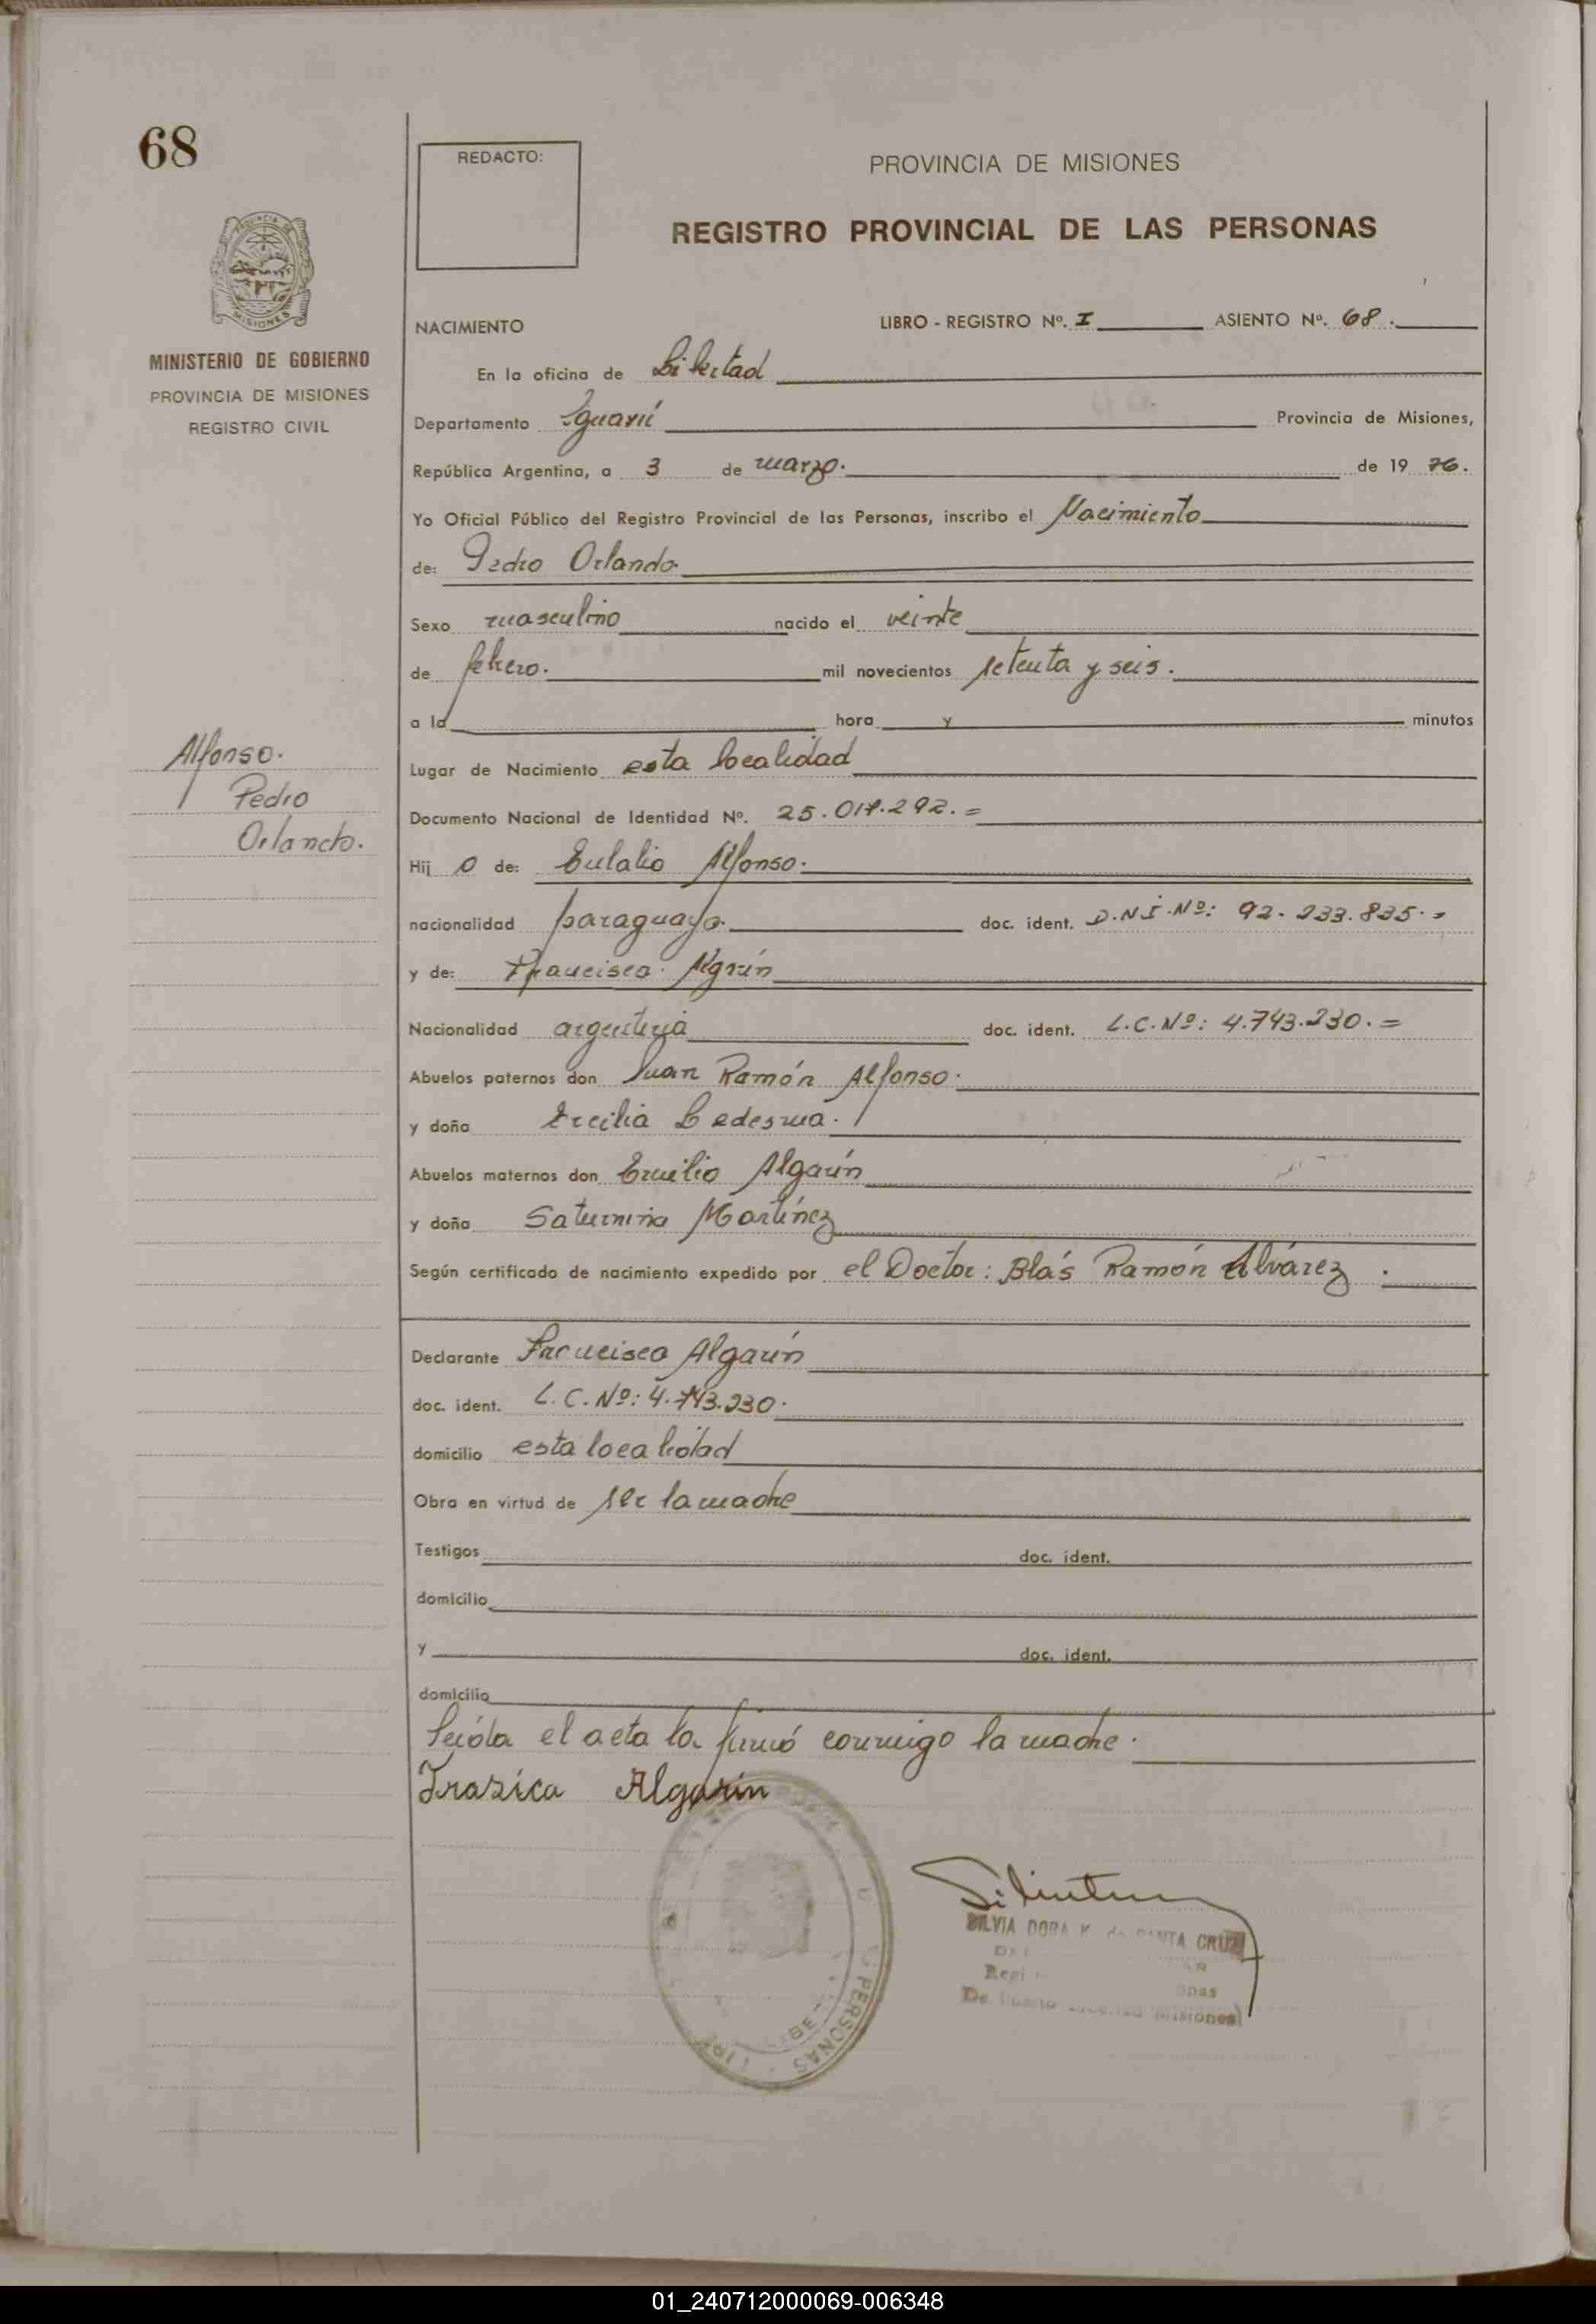 68
REDACTO:
PROVINCIA DE MISIONES
REGISTRO PROVINCIAL DE LAS PERSONAS
PROVINCIA DE
MISIONES
MINISTERIO DE GOBIERNO
PROVINCIA DE MISIONES
REGISTRO CIVIL
NACIMIENTO LIBRO - REGISTRO Nº. I ASIENTO Nº. 68.
En la oficina de Libertad
Departamento Iguazú Provincia de Misiones,
República Argentina, a 3 de marzo. de 19 76.
Yo Oficial Público del Registro Provincial de las Personas, inscribo el Nacimiento
de: Pedro Orlando.
Sexo masculino nacido el veinte
de febrero. mil novecientos setenta y seis.
a la hora y minutos
Alfonso.
Pedro
Orlando.
Lugar de Nacimiento esta localidad
Documento Nacional de Identidad Nº. 25.017.292.=
Hij o de: Eulalio Alfonso.
nacionalidad paraguayo. doc. ident. D.N.I.Nº: 92.233.835.=
y de: Francisca Algarín
Nacionalidad argentina doc. ident. L.C.Nº: 4.743.230.=
Abuelos paternos don Juan Ramón Alfonso.
y doña Ercilia Ledesma.
Abuelos maternos don Emilio Algarín
y doña Saturnina Martínez
Según certificado de nacimiento expedido por el Doctor: Blás Ramón Alvárez.
Declarante Francisca Algarín
doc. ident. L.C.Nº: 4.743.230.
domicilio esta localidad
Obra en virtud de ser la madre
Testigos doc. ident.
domicilio
y doc. ident.
domicilio
Leída el acta la firmó conmigo la madre.
Algarín
SILVIA DORA K. de SANTA CRUZ
PERSONAS
Misiones)
01_240712000069-006348